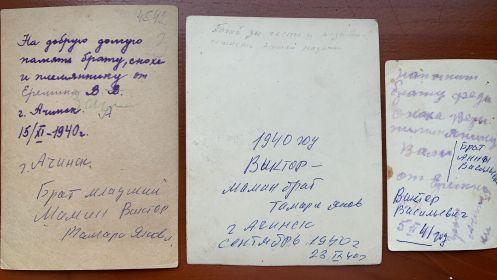 4542
На добрую долгую
память брату, снохе
и племяннику от
Ерёмина В. В.
г. Ачинск.
15/XI-1940г.
г. Ачинск.
Брат младший
Мамин Виктор
Тамара Яковл
1940 год
Виктор-
мамин брат
Тамара Яков
г Ачинск
сентябрь 1940г
23 IX 40г
на память
брату Феде
снохе Вере
племяннику
Вале
от
Брат
Анны
Василь
Виктор
Васильевич
5 VI 41 год